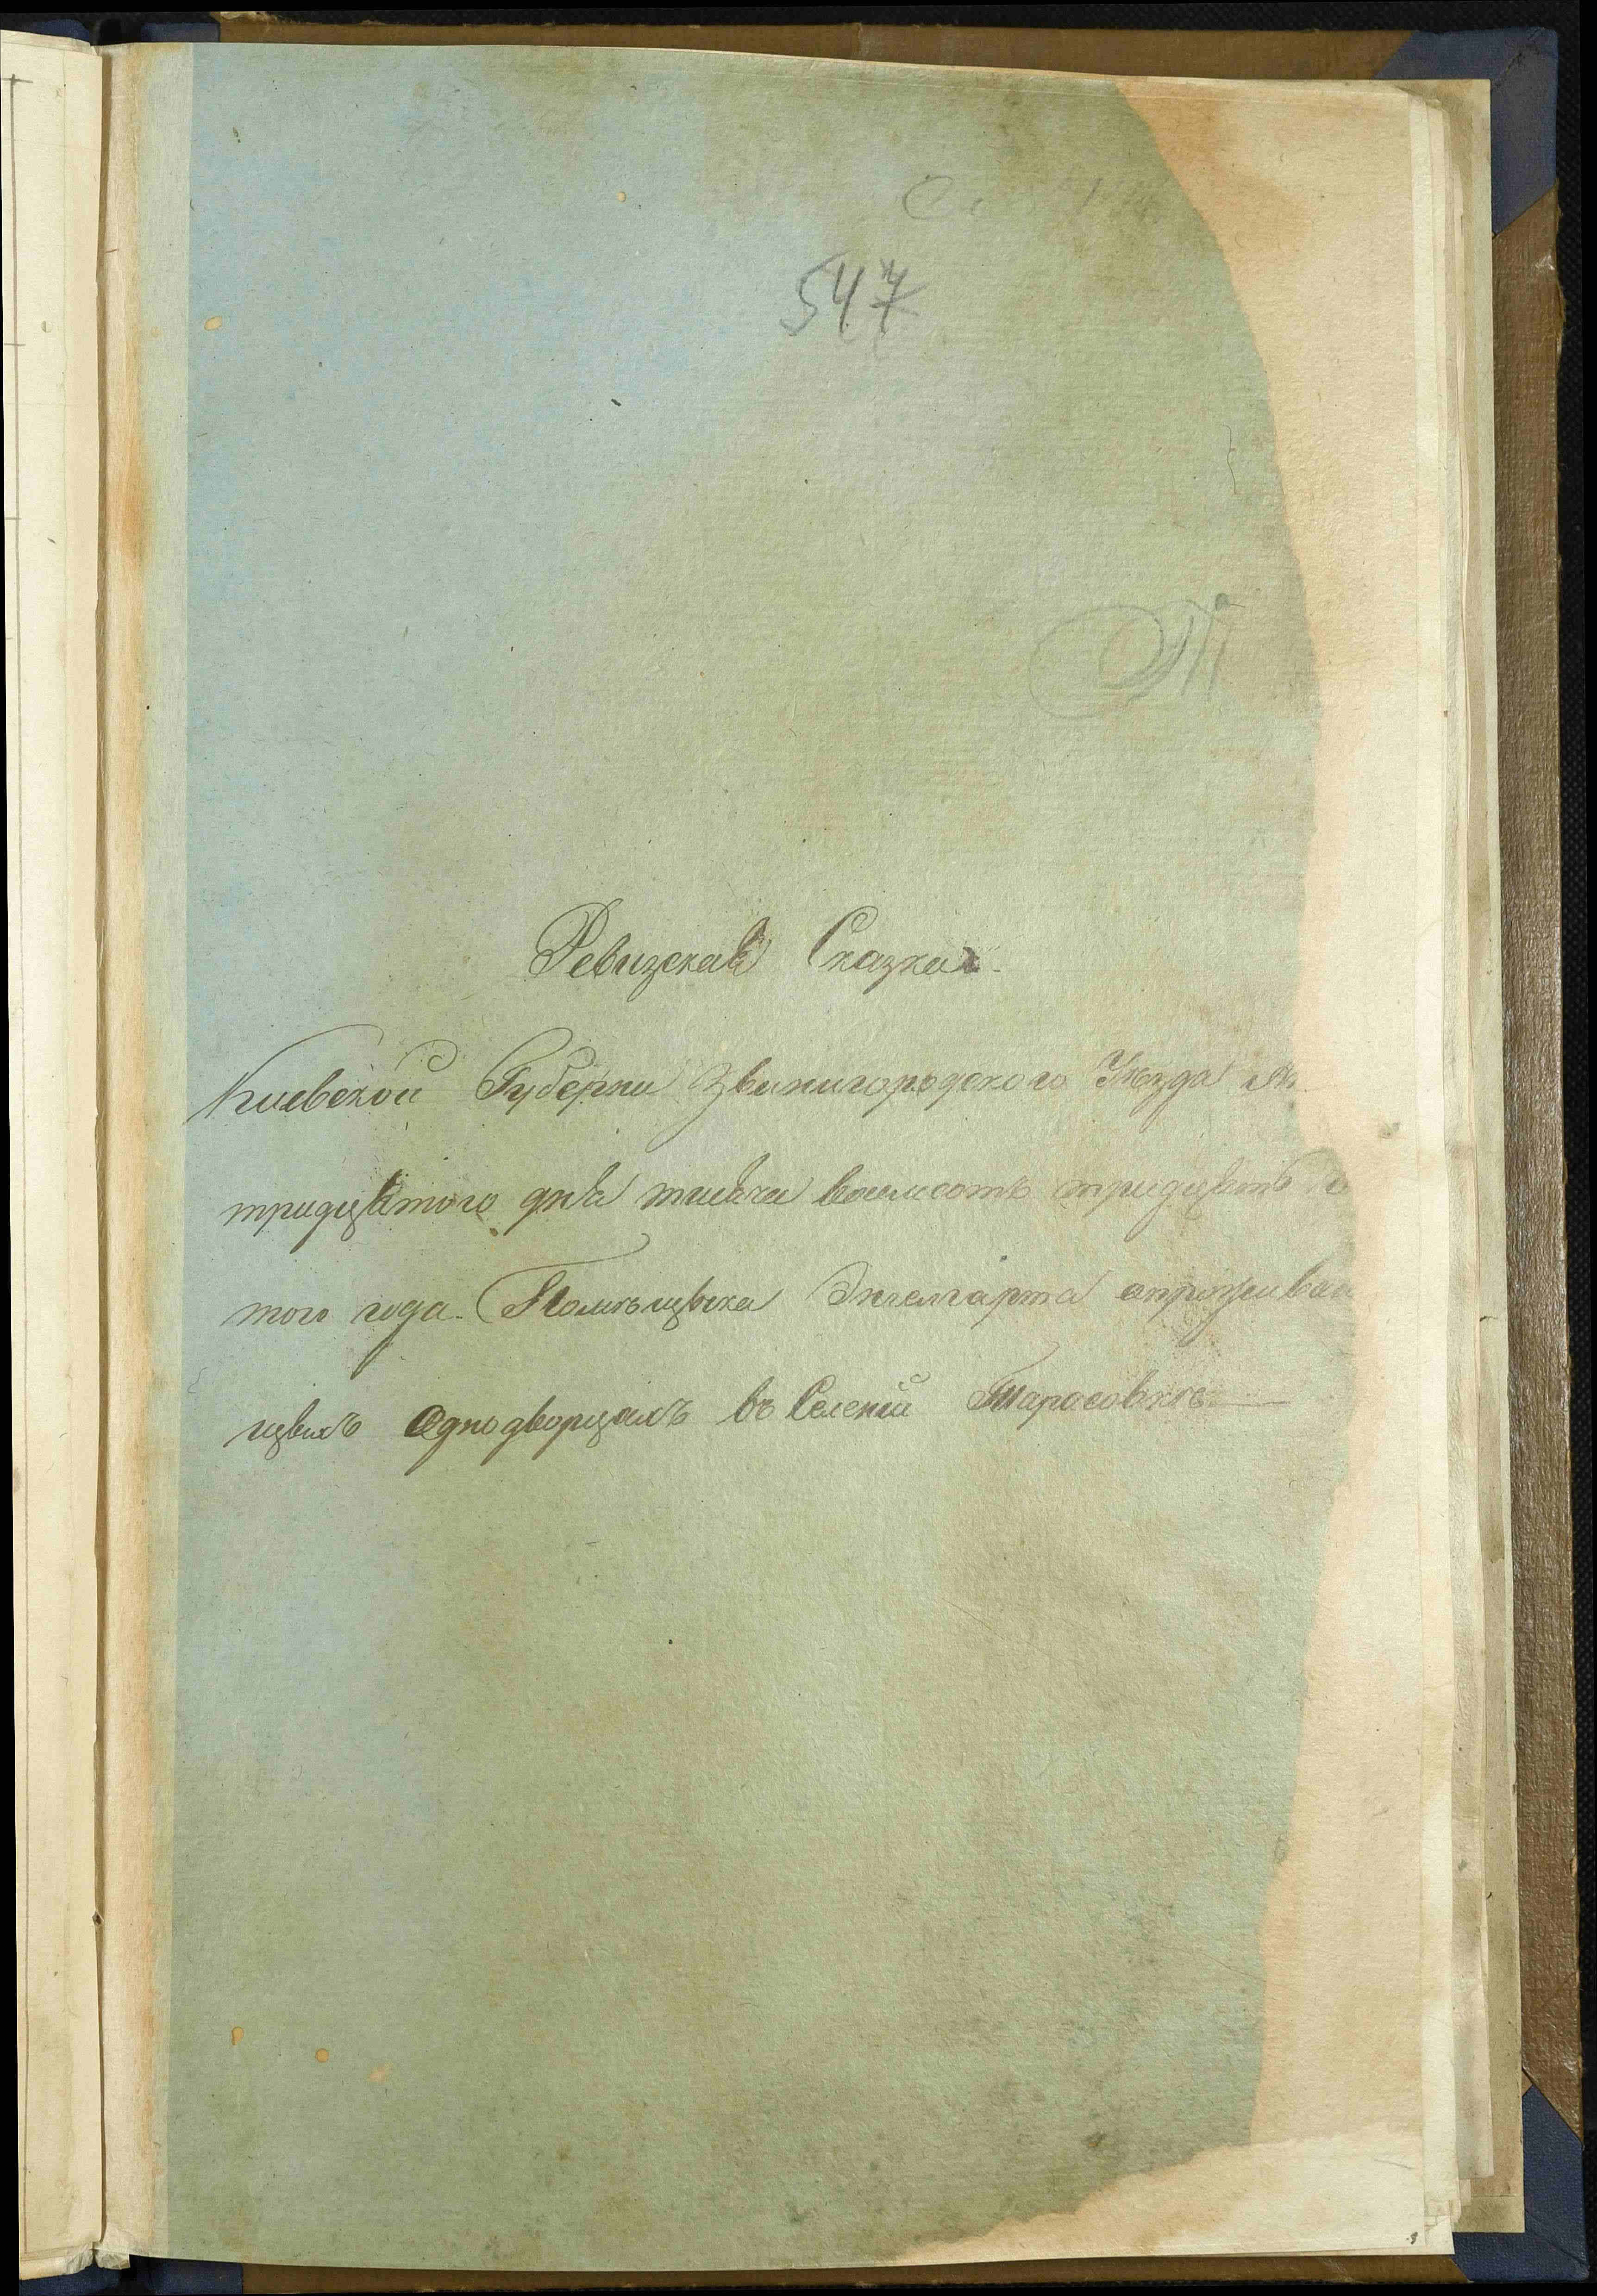 547
Ревизская Сказка
Киевской Губерни Звенигородского Уезда
тридцятого дня тисяча восемсотъ тридцять
того года. Помѣщика Энгелгарта опроживаю
щихъ Однодворцахъ въ Селеніи Тарасовке